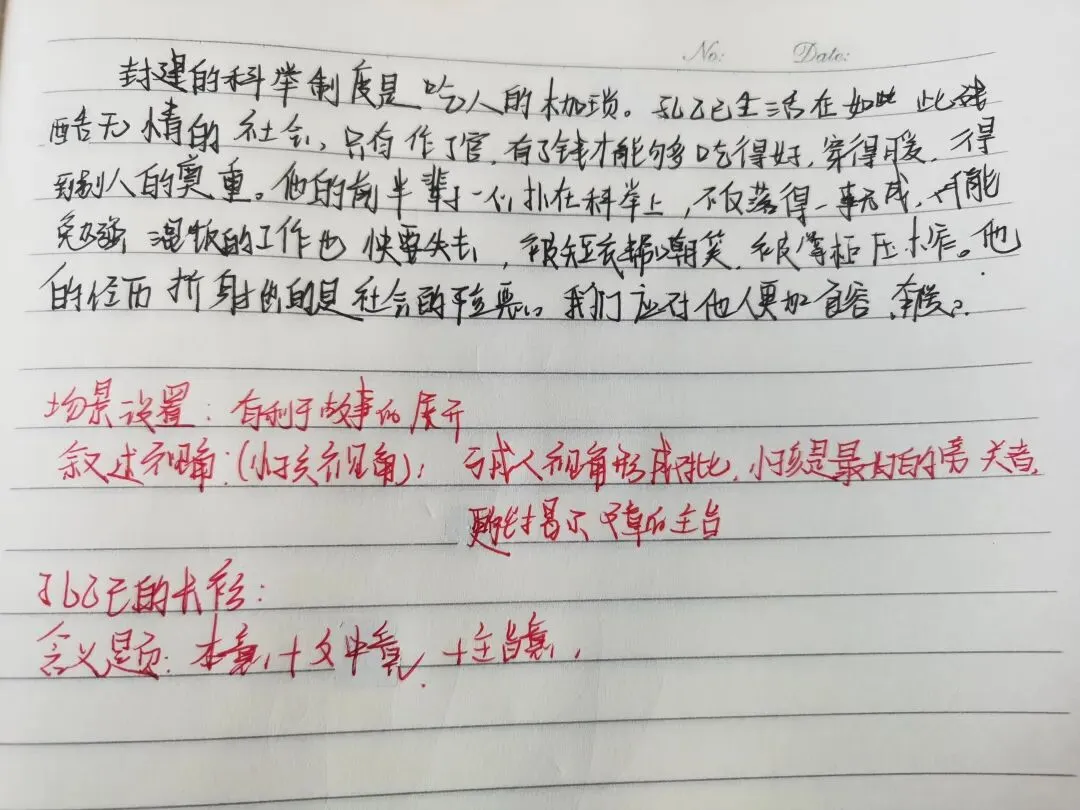 No: Date:
封建的科举制度是吃人的枷琐。孔乙己生活在如此 此残
酷无情的社会,只有作了官,有了钱才能够多吃得好,穿得暖,得
到别人的尊重。他的前半辈子一心扑在科举上,不仅落得一事无成,可能
免勉强混饭的工作也快要失去,被短衣帮嘲笑,被掌柜压榨。他
的经历折射出的是社会的险恶。我们应对他人更加宽容、
场景设置:有利于故事的展开
叙述视角:(小孩视角):与成人视角形成对比,小孩是最好的旁关者,
更能揭示文章的主旨
孔乙己的长衫:
含义题:本意+文中意+主旨意,